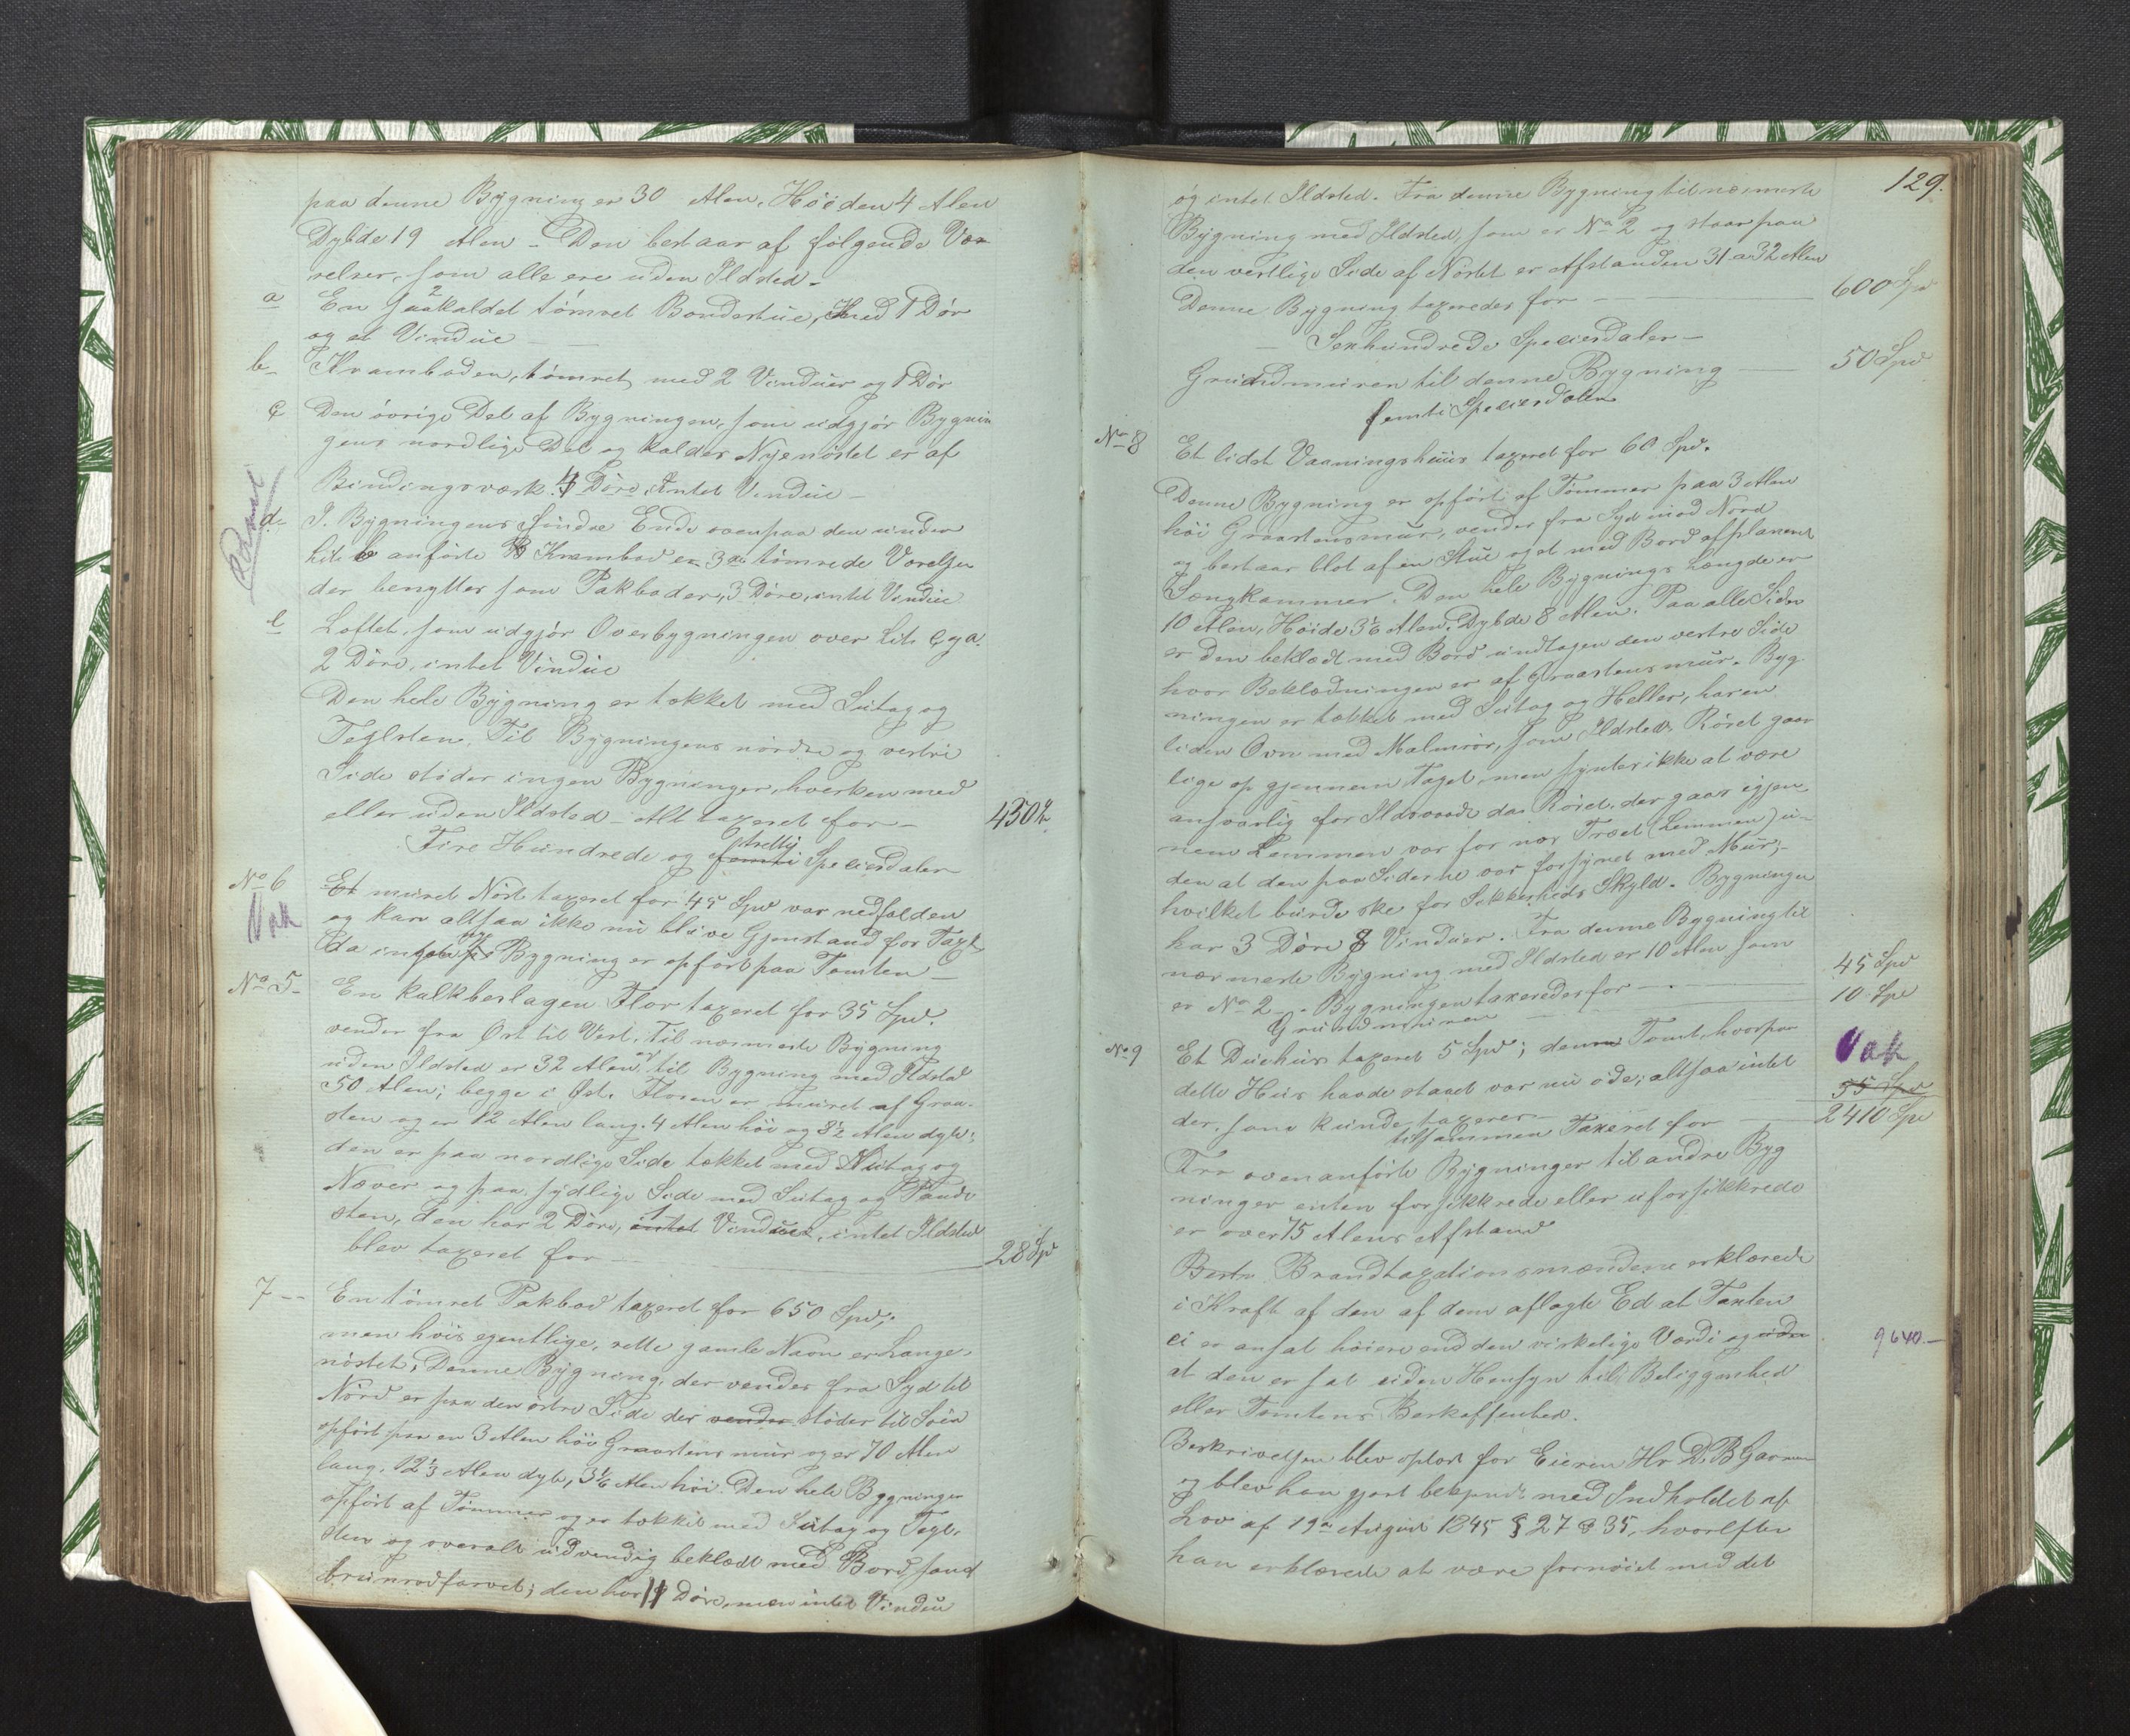 paa denne Bygning er 30 Alen, Høiden 4 Alen
Dybde 19 Alen - Den bestaar af følgende Væ-
relser, som alle ere uden Ildsted -
a En saakaldet tømret Bondestue, med 1 Dør
og et Vindue
b Kramboden, tømret med 2 Vinduer og 1 Dør
c Den øvrige Del af Bygningen, som udgjør Bygnin
gens nordlige Del og kaldes Nyenøstet er af
Bindingsværk. 4 Døre, intet Vindue -
d- I Bygningens søndre Ende ovenpaa den under
Lit. b anførte Krambod er 3de tømrede Værelser
der benyttes som Pakboder, 3 Døre, intet Vindue
e Loftet, som udgjør Overbygningen over Lit. c og a.
2 Døre, intet Vindue
Den hele Bygning er tækket med Sutag og
Teglsten. Til Bygningens nordre og vestre
Side støder ingen Bygninger, hverken med
eller uden Ildsted - Alt taxeret for -
Fire Hundrede og femti Speciesdaler
tretti
No 6 Et muret Nøst taxeret for 45 Spd var nedfalden
Vak og kan altsaa ikke nu blive Gjenstand for Taxt
da ingen ny Bygning er opført paa Tomten -
No 5- En kalkbeslagen Flor taxeret for 35 Spd.
vender fra Øst til Vest. Til nærmeste Bygning
uden Ildsted er 32 Alen og til Bygning med Ildsted
50 Alen; begge i Øst. Floren er muret af Graa-
sten og er 12 Alen lang, 4 Alen høi og 8½ Alen dyb;
den er paa nordlige Side tækket med Sutag og
Næver og paa sydlige Side med Sutag og Pande
sten, den har 2 Døre, intet 1 Vindue, intet Ildsted
blev taxeret for 28 Spd
7 -- En tømret Pakbod taxeret for 650 Spd;
men hvis egentlige, rette gamle Navn er Lange-
nøstet. Denne Bygning, der vender fra Syd til
Nord er paa den østre Side der vender støder til Søen
opført paa en 3 Alen høi Graastensmur og er 70 Alen
lang, 12⅓ Alen dyb, 3⅙ Alen høi. Den hele Bygning er
opført af Tømmer og er tækket med Sutag og Tegl-
sten og overalt udvendig beklædt med Bord samt
brunrødfarvet; den har 11 Døre, men intet Vindue
129.
og intet Ildsted. Fra denne Bygning til nærmeste
Bygning med Ildsted, som er No 2 og staar paa
den vestlige Side af Nøstet er Afstanden 31 a 32 Alen
Denne Bygning taxeredes for - 600 Spd
- Sexhundrede Speciesdaler -
Grundmuren til denne Bygning - 50 Spd
femti Speciesdaler
No 8 Et lidet Vaaningshuus taxeret for 60 Spd.
Denne Bygning er opført af Tømmer paa 3 Alen
høi Graastensmur, vender fra Syd mod Nord
og bestaar blot af en Stue og et med Bord afplanent
Sængkammer. Den hele Bygnings Længde er
10 Alen, Høide 3⅙ Alen, Dybde 8 Alen. Paa alle Sider
er den beklædt med Bord undtagen den vestre Side
hvor Beklædningen er af Graastensmur. Byg
ningen er tækket med Sutag og Heller, har en
liden Ovn med Malmrør, som Ildsted. Røret gaar
lige op gjennem Taget, men syntes ikke at være
ansvarlig for Ildsvaade da Røret, der gaar igjen-
nem Lemmen var for nær Træet (Lemmen) u-
den at den paa Siderne var forsynet med Mur;-
hvilket burde ske for Sikkerheds Skyld. Bygningen
har 3 Døre 8 Vinduer. Fra denne Bygning til
nærmeste Bygning med Ildsted er 10 Alen som
er No 2 - Bygningen taxeredes for - 45 Spd
Grundmuren - 10 Spd
No 9 Et Duehus taxeret 5 Spd; denne Tomt, hvorpaa Vak
dette Hus havde staaet var nu øde; altsaa intet
55 Spd
der, som kunde taxeres -
tilsammen Taxeret for 2410 Spd
Fra ovenanførte Bygninger til andre Byg
ninger enten forsikkrede eller uforsikkrede
er over 75 Alens Afstand
Brandtaxationsmændene erklærede
i Kraft af den af dem aflagte Ed at Taxten
ei er ansat høiere end den virkelige Værdi og uden 9640.-
at den er sat uden Hensyn til Beliggenhed
eller Tomtens Beskaffenhed.
Beskrivelsen blev oplæst for Eieren Hr D. B Garman
og blev han gjort bekjendt med Indholdet af
Lov af 19de August 1845 § 27 & 35, hvorefter
han erklærede at være fornøiet med det